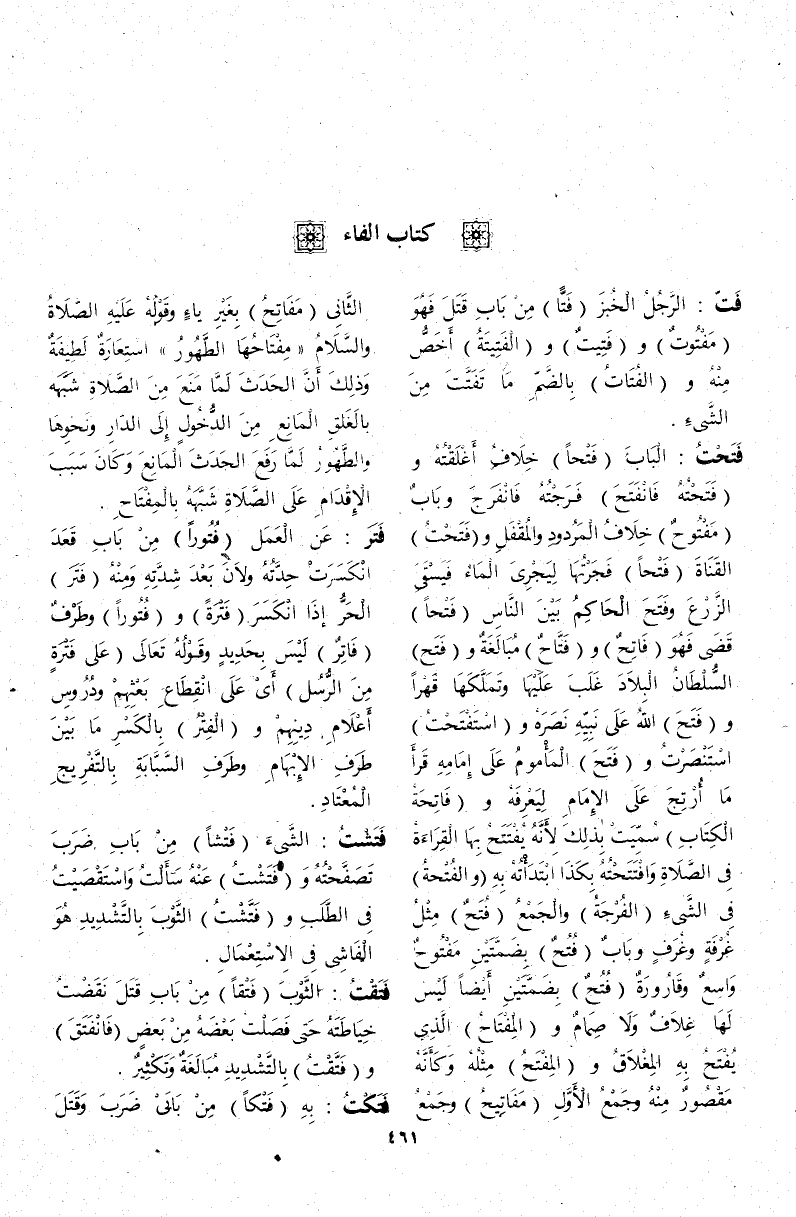 كتاب الفاء
فَتّ : الرَّجُلُ الْخُبزَ ( فَتًّا ) مِنْ بَابِ قَتَلَ فَهُوَ
( مَفْتُوتٌ ) و ( فَتِيتٌ ) و ( الْفَتِيتَةُ ) أَخَصُّ
مِنْهُ و ( الفُتَاتُ ) بِالضَّمِّ مَا تَفَتَّتَ مِنَ
الشَّىءِ .
فَتَحْتُ : الْبَابَ ( فَتْحاً ) خِلَافُ أَغْلَقْتُهُ و
( فَتَحْتُهُ فَانْفَتَحَ ) فَرَجْتُهُ فَانْفَرَجَ وبَابٌ
( مَفْتُوحٌ ) خِلَافُ الْمَرْدودِ والْمُقْفَلِ و (فَتَحْتُ )
القَنَاةَ ( فَتْحاً ) فَجَرْتُهَا لِيَجْرِىَ الْمَاءُ فَيَسْقِىَ
الزَّرْعَ وفَتَحَ الْحَاكِمُ بَيْنَ النَّاسِ ( فَتْحاً )
قَضَى فَهُوَ ( فَاتِحٌ ) و ( فَتَّاحٌ ) مُبَالَغَةٌ و ( فَتَحَ)
السُّلْطَانُ الْبِلَادَ غَلَبَ عَلَيْهَا وتَمَلَّكَهَا قَهْراً
و ( فَتَحَ ) اللهُ عَلَى نَبِيِّهِ نَصَرَهُ و ( اسْتَفْتَحْتُ )
اسْتَنْصَرْتُ و ( فَتَحَ ) الْمَأْمومُ عَلَى إِمَامِهِ قَرَأَ
مَا أُرْتِجَ عَلَى الإِمَامِ لِيَعْرِفَهُ و ( فَاتِحَةُ
الْكِتَابِ ) سُمِّيَتْ بِذلِكَ لِأَنَّهُ يُفْتَتَحُ بِهَا القِرَاءَةُ
فِى الصَّلَاةِ وَافْتَتَحْتُهُ بِكَذَا ابْتَدَأْتُهُ بِهِ (و الفُتْحةُ)
فِى الشَّىءِ ( الْفُرْجَةُ ) والْجَمْعُ ( فُتَحٌ ) مِثْلُ
غُرْفَةٍ وغُرَفٍ وبابٌ ( فُتُحٌ ) بِضَمَّتَيْنِ مَفْتُوحٌ
وَاسِعٌ وقَارُورَةٌ ( فُتُحٌ ) بِضَمَّتَيْنِ أَيْضاً لَيْسَ
لَهَا غِلَافٌ وَلَا صِمَامٌ و ( الْمِفْتَاحُ ) الَّذِي
يُفْتَحُ بِهِ الْمِغْلَاقُ و ( الْمِفْتَحُ ) مِثْلُهُ وَكَأَنَّهُ
مَقْصُورٌ مِنْهُ وجَمْعُ الْأَوَّلِ ( مَفَاتِيحُ ) وجَمْعُ
الثَّانِى ( مَفَاتِحُ ) بِغَيْرِ ياءٍ وقَوْلُهُ عَلَيْهِ الصَّلَاةُ
والسَّلَامُ « مِفْتَاحُهَا الطَّهُورُ » استِعَارَةٌ لَطِيفَةٌ
وَذلِكَ أَنَّ الْحَدَثَ لَمَّا مَنَعَ مِنَ الصَّلَاةِ شَبَّهَه
بِالْغَلَقِ الْمَانِعِ مِنَ الدُّخُولِ إِلَى الدَّارِ ونَحوِهَا
والطَّهُورُ لَمَّا رَفَعَ الْحَدَثَ الْمَانِعَ وَكَانَ سَبَبَ
الإِقْدَامِ عَلَى الصَّلَاةِ شَبَّهَهُ بِالْمِفْتَاحِ .
فَتَرَ : عَنِ الْعَمَلِ ( فُتُوراً ) مِنْ بَابِ قَعَدَ
انْكَسَرَتْ حِدَّتُهُ ولَانَ بَعْدَ شِدَّتِهِ وَمِنْهُ ( فَتَرَ )
الْحَرُّ إِذَا انْكَسَرَ ( فَتْرَةً ) و ( فُتُوراً ) وطَرْفٌ
( فَاتِرٌ ) لَيْسَ بِحَدِيدٍ وقَوْلُهُ تَعَالَى ( عَلَى فَتْرَةٍ
مِنَ الرُّسُلِ ) أَىْ عَلَى انْقِطَاعِ بَعْثِهِمْ ودُرُوسِ
أَعْلَامِ دِينِهِمْ و ( الْفِتْرُ ) بِالْكَسْرِ مَا بَيْنَ
طَرَفِ الإِبْهَامِ وطَرَفِ السَّبَّابَةِ بِالتَّفْرِيجِ
الْمُعْتَادِ .
فَتَشْتُ : الشَّىءَ ( فَتْشاً ) مِنْ بَابِ ضَرَبَ
تَصَفَّحْتُهُ وَ ( فَتَشْتُ ) عَنْهُ سَأَلْتُ وَاسْتَقْصَيْتُ
فِى الطَّلَبِ و ( فَتَّشْتُ ) الثَّوْبَ بِالتَّشْدِيدِ هُوَ
الْفَاشِى فِى الِاسْتِعْمَالِ .
فَتَقْتُ : الثَّوْبَ ( فَتْقاً ) مِنْ بَابِ قَتَلَ نَقَضْتُ
خِيَاطَتَهُ حَتى فَصَلْت بَعْضَهُ مِنْ بَعضٍ ( فَانْفَتَقَ )
و ( فَتَّقْتُ ) بِالتَّشْدِيدِ مُبَالَغَةٌ وَتَكْثِيرٌ .
فَتَكْتُ : بِهِ ( فَتْكاً ) مِنْ بَابَىْ ضَرَبَ وَقَتَلَ
٤٦١